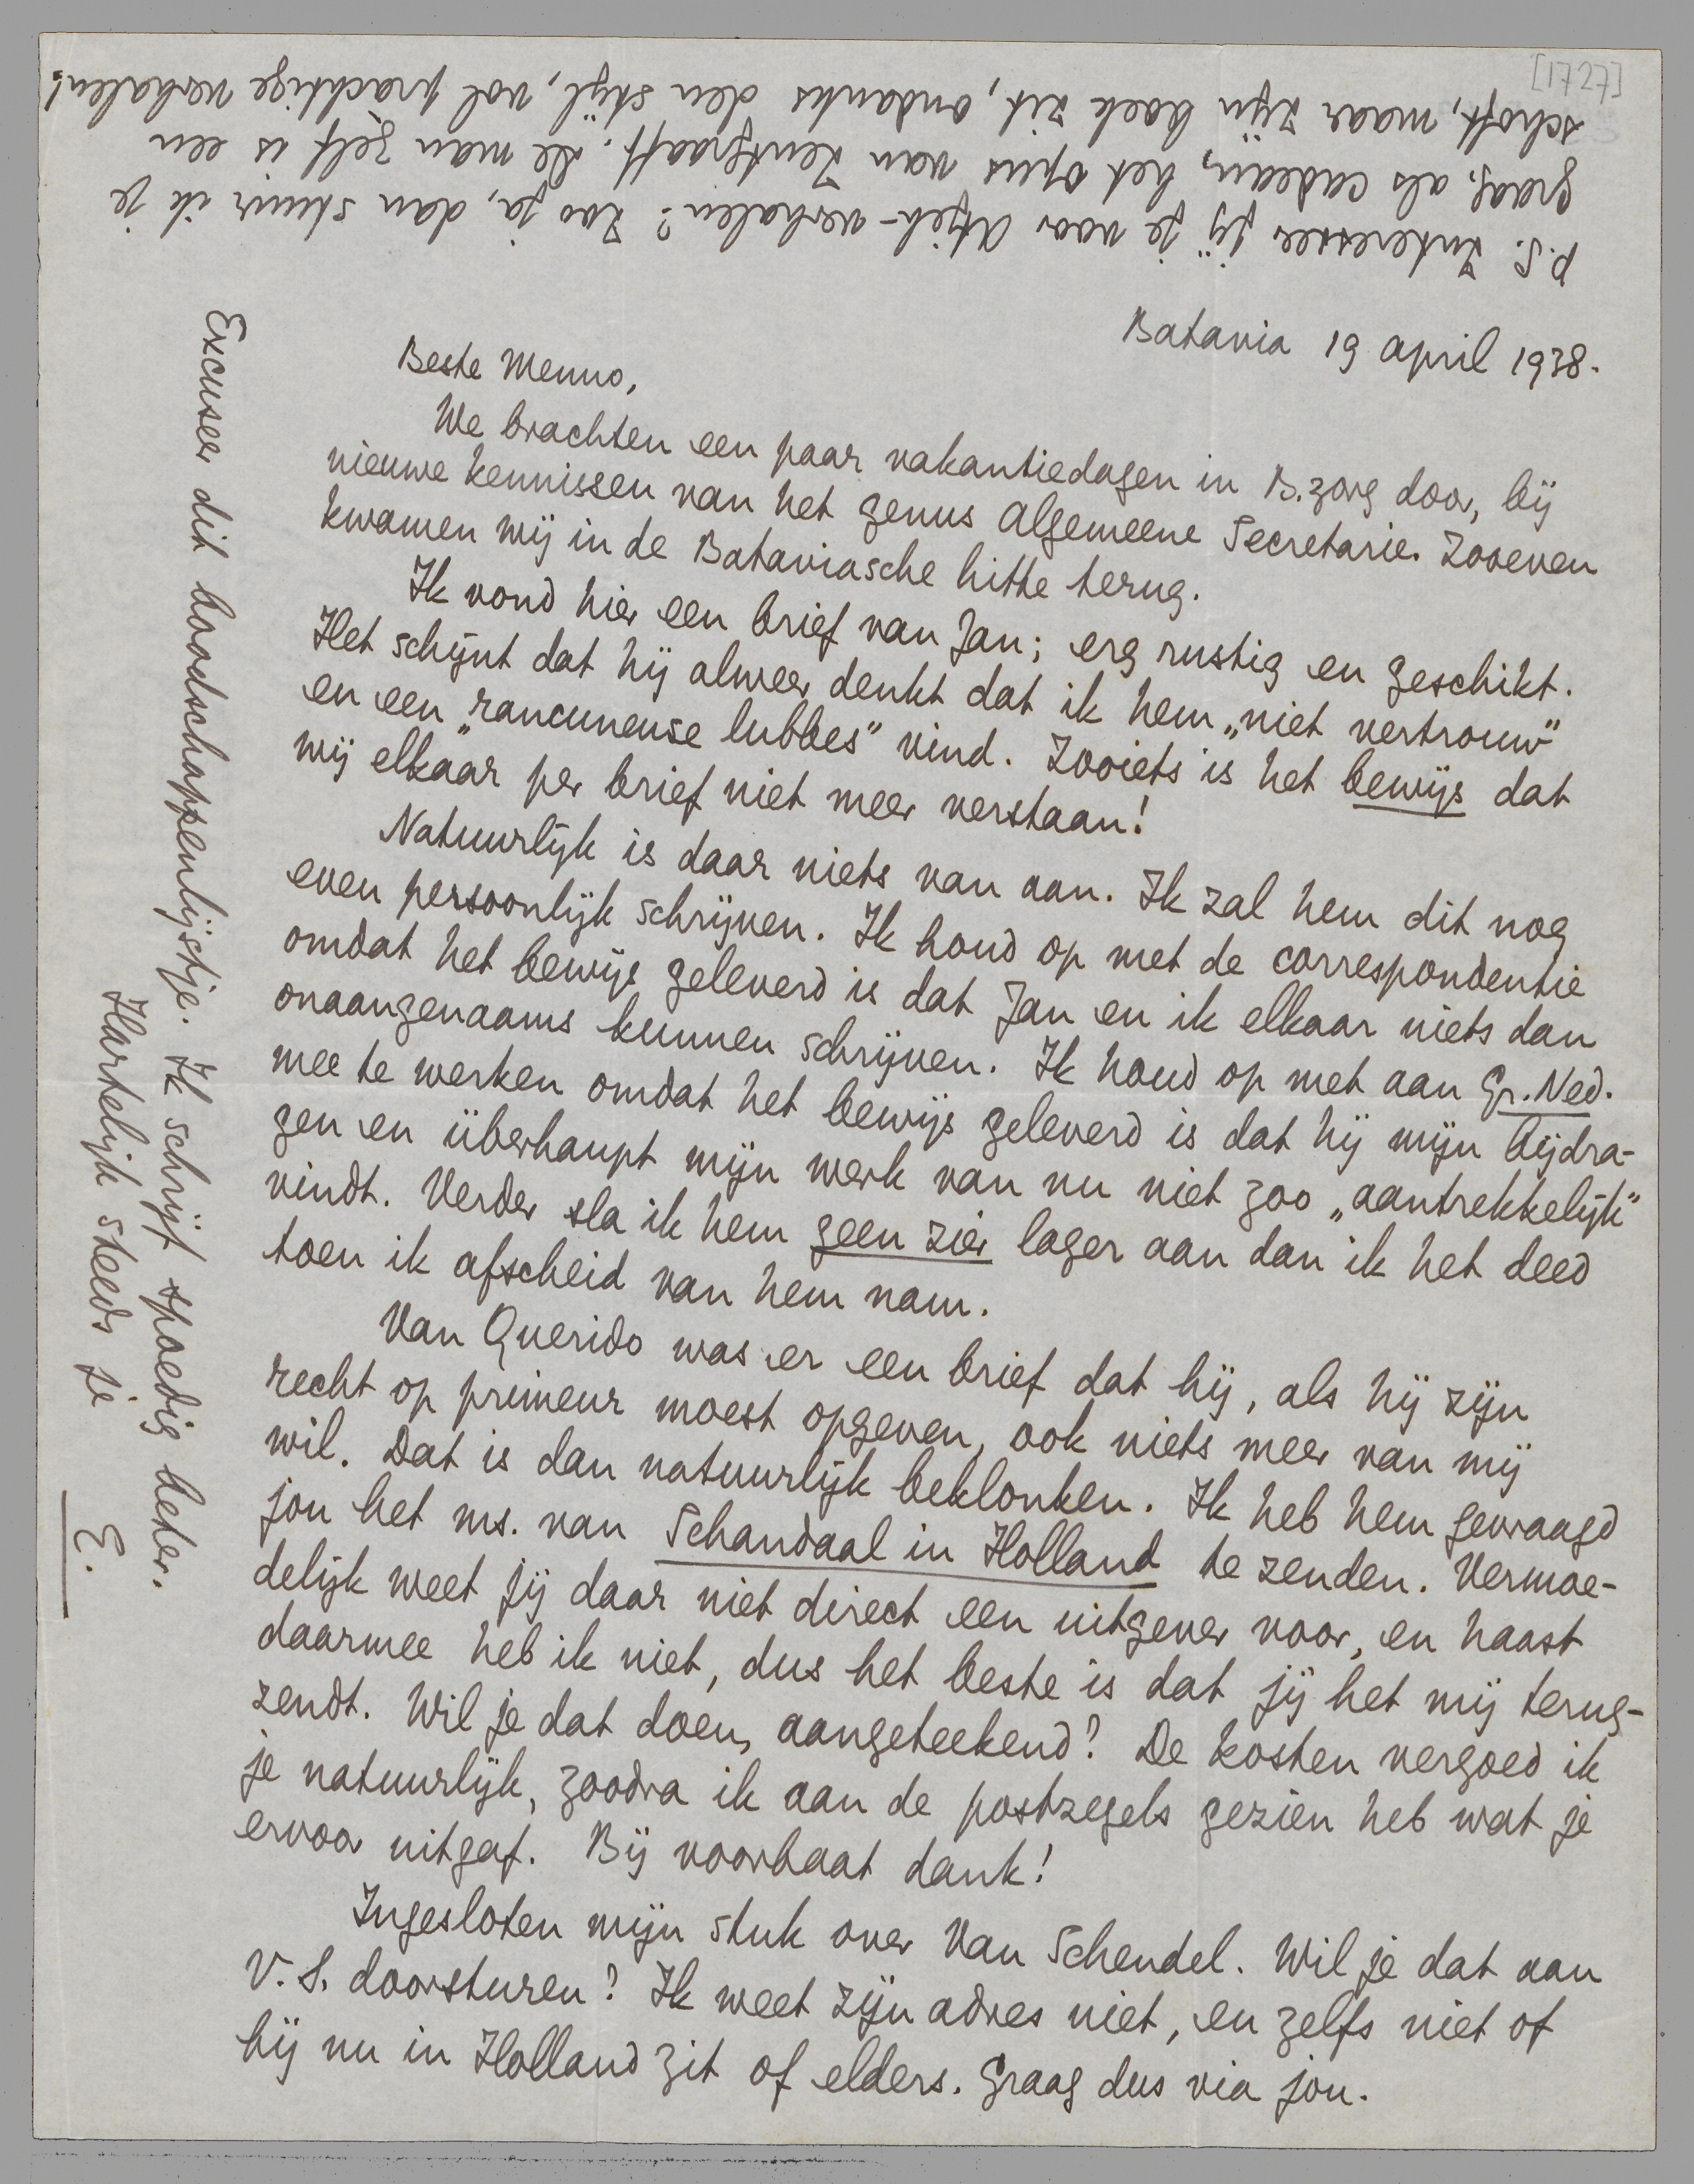 [1727]
Batavia 19 april 1938.
Beste Menno,
We brachten een paar vakantiedagen in B.zorg door, bij
nieuwe kennissen van het genus Algemeene Secretarie. Zooeven
kwamen wij in de Bataviasche hitte terug.
Ik vond hier een brief van Jan; erg rustig en geschikt.
Het schijnt dat hij alweer denkt dat ik hem „niet vertrouw”
en een „rancuneuse lubbes” vind. Zooiets is het bewijs dat
wij elkaar per brief niet meer verstaan!
Natuurlijk is daar niets van aan. Ik zal hem dit nog
even persoonlijk schrijven. Ik houd op met de correspondentie
omdat het bewijs geleverd is dat Jan en ik elkaar niets dan
onaangenaams kunnen schrijven. Ik houd op met aan Gr. Ned.
mee te werken omdat het bewijs geleverd is dat hij mijn bijdra-
gen en überhaupt mijn werk van nu niet zoo „aantrekkelijk”
vindt. Verder sla ik hem geen zier lager aan dan ik het deed
toen ik afscheid van hem nam.
Van Querido was er een brief dat hij, als hij zijn
recht op primeur moest opgeven, ook niets meer van mij
wil. Dat is dan natuurlijk beklonken. Ik heb hem gevraagd
jou het ms. van Schandaal in Holland te zenden. Vermoe-
delijk weet jij daar niet direct een uitgever voor, en haast
daarmee heb ik niet, dus het beste is dat jij het mij terug-
zendt. Wil je dat doen, aangeteekend? De kosten vergoed ik
je natuurlijk, zoodra ik aan de postzegels gezien heb wat je
ervoor uitgaf. Bij voorbaat dank!
Ingesloten mijn stuk over Van Schendel. Wil je dat aan
V. S. doorsturen? Ik weet zijn adres niet, en zelfs niet of
hij nu in Holland zit of elders. Graag dus via jou.
Excuseer dit boodschappenlijstje. Ik schrijf spoedig beter.
Hartelijk steeds je
E.
P.S. Interesseer jij je voor Atjeh-verhalen? Zoo ja, dan stuur ik je
graag, als cadeau, het opus van Zentgraaff. De man zelf is een
schoft, maar zijn boek zit, ondanks den stijl, vol prachtige verhalen!